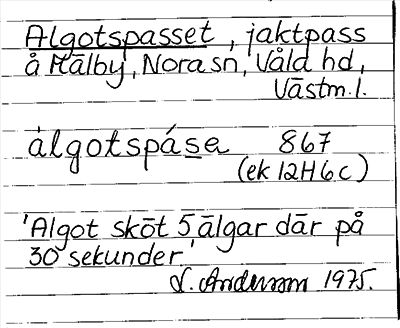 Algotspasset, jaktpass
å Mälby, Nora sn, Våld hd,
Västm. l.
álgotspása 867
(ek 12H6c)
'Algot sköt 5 älgar där på
30 sekunder'
Andersson 1975.